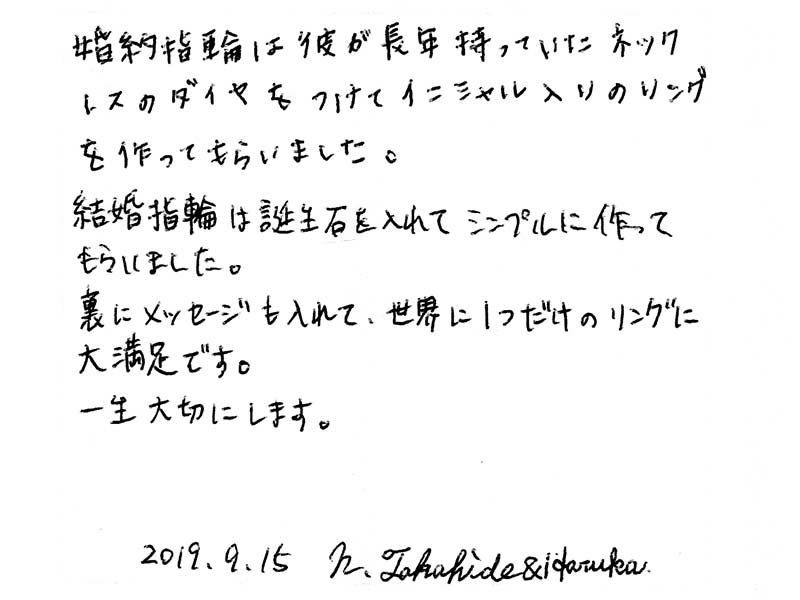 婚約指輪は彼が長年持っていたネック
レスのダイヤをつけてイニシャル入りのリング
を作ってもらいました。
結婚指輪は誕生石を入れてシンプルに作って
もらいました。
裏にメッセージも入れて、世界に1つだけのリングに
大満足です。
一生大切にします。
2019.9.15 N. Takahide & Haruka.